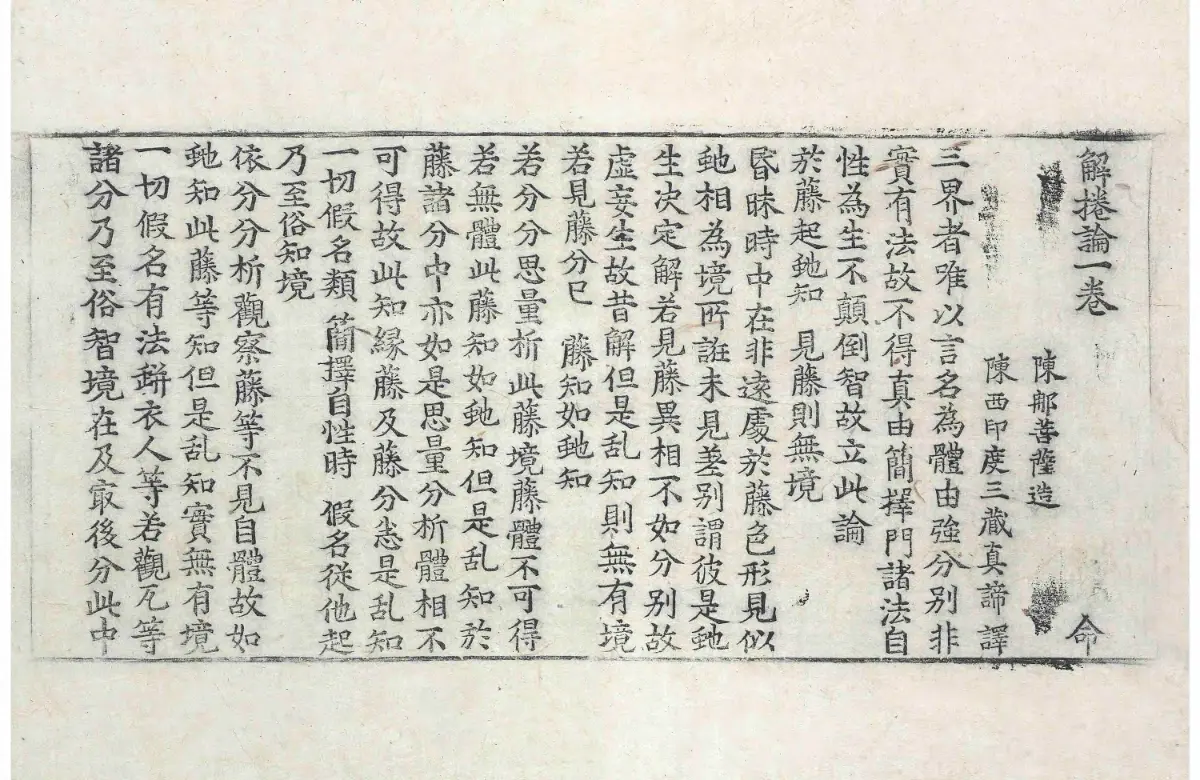 解捲論一卷 命
陳那菩薩造
陳西印度三藏真諦譯
三界者唯以言名為體由強分別非
實有法故不得真由簡擇門諸法自
性為生不顛倒智故立此論
於藤起虵知 見藤則無境
昬昧時中在非遠處於藤色形見似
虵相為境所誑未見差別謂彼是虵
生决定解若見藤異相不如分別故
虛妄生故昔解但是乱知則無有境
若見藤分已 藤知如虵知
若分分思量析此藤境藤體不可得
若無體此藤知如虵知但是乱知於
藤諸分中亦如是思量分析體相不
可得故此知緣藤及藤分悉是乱知
一切假名類 簡擇自性時 假名從他起
乃至俗知境
依分分析觀察藤等不見自體故如
虵知此藤等知但是乱知實無有境
一切假名有法缾衣人等若觀瓦等
諸分乃至俗智境在及冣後分此中